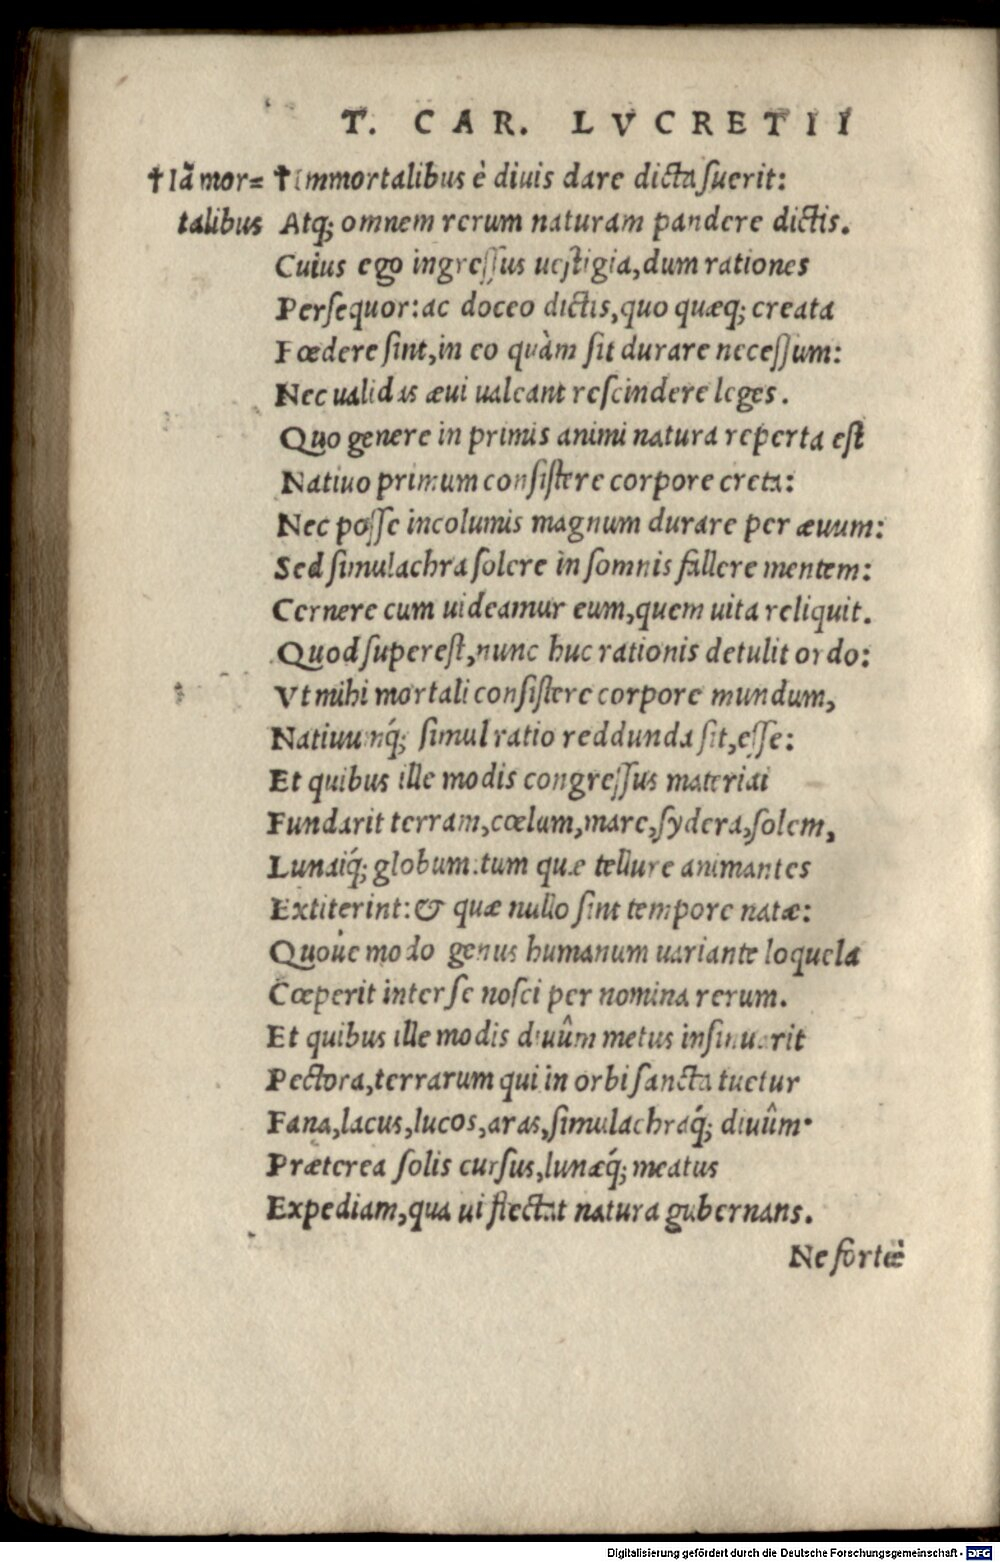 T. CAR. LVCRETII
†Iã mor= †Immortalibus è diuis dare dicta suerit:
talibus Atq; omnem rerum naturam pandere dictis.
Cuius ego ingressus uestigia, dum rationes
Persequor: ac doceo dictis, quo quæq; creata
Fœdere sint, in eo quàm sit durare necessum:
Nec ualidas æui ualeant rescindere leges.
Quo genere in primis animi natura reperta est
Natiuo primum consistere corpore creta:
Nec posse incolumis magnum durare per æuum:
Sed simulachra solere in somnis fallere mentem:
Cernere cum uideamur eum, quem uita reliquit.
Quod superest, nunc huc rationis detulit ordo:
Vt mihi mortali consistere corpore mundum,
Natiuumq́; simul ratio reddunda sit, esse:
Et quibus ille modis congressus materiai
Fundarit terram, cœlum, mare, sydera, solem,
Lunaiq́; globum. tum quæ tellure animantes
Extiterint: & quæ nullo sint tempore natæ:
Quoúe modo genus humanum uariante loquela
Cœperit inter se nosci per nomina rerum.
Et quibus ille modis diuûm metus insinuarit
Pectora, terrarum qui in orbi sancta tuetur
Fana, lacus, lucos, aras, simulachraq́; diuûm.
Præterea solis cursus, lunæq́; meatus
Expediam, qua ui flectat natura gubernans.
Ne forte
Digitalisierung gefördert durch die Deutsche Forschungsgemeinschaft - DFG